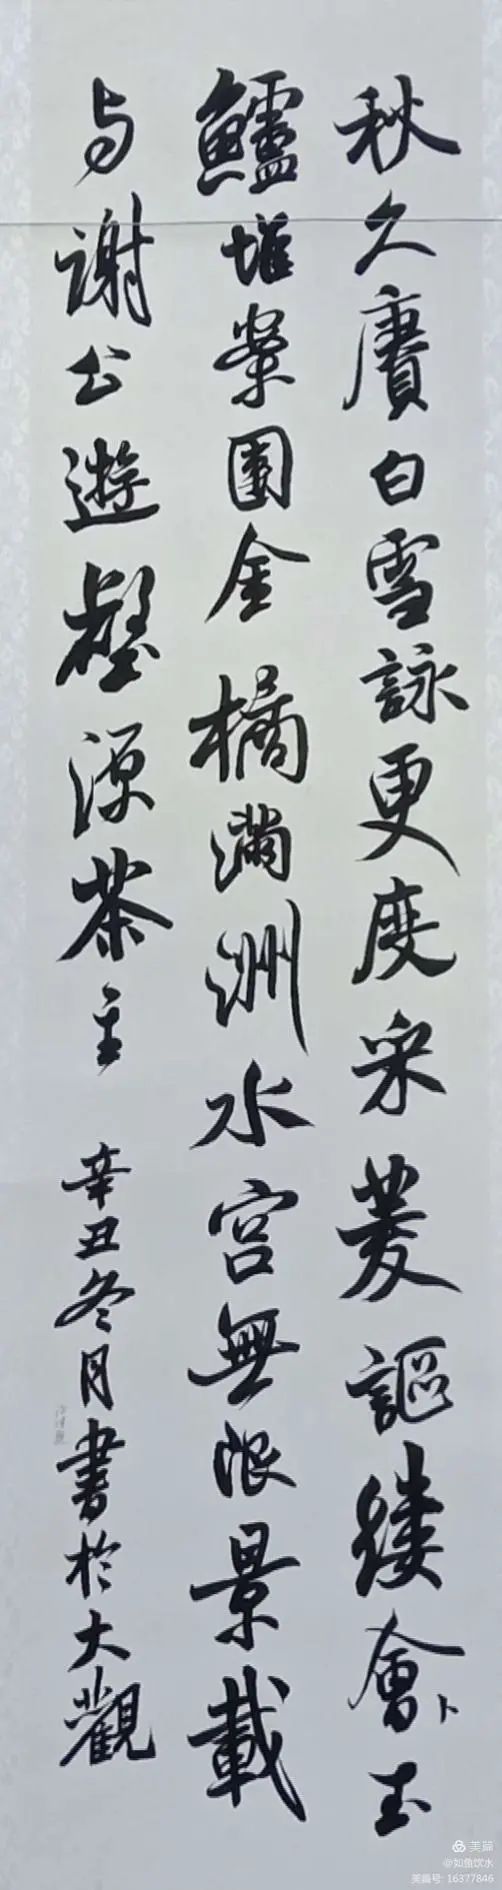 秋久賡白雪詠更度采菱謳縷會卜玉
鱸堆案團金橘滿洲水宮無限景載
与謝公遊壑源茶主 辛丑冬月書於大觀
美篇
@如鱼饮水
美篇号: 16377846